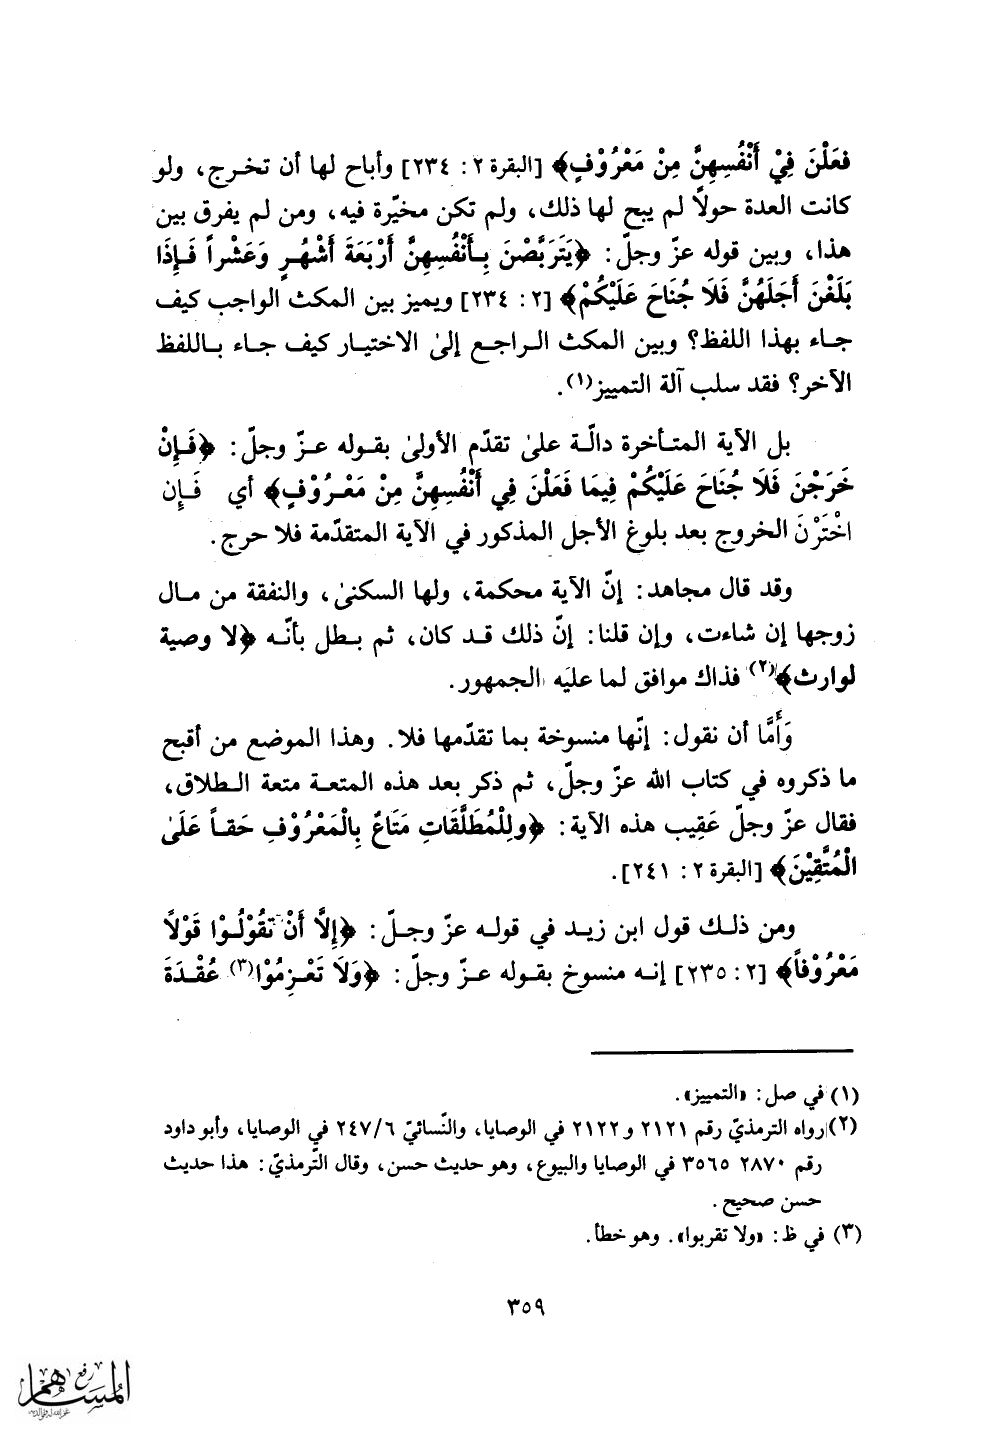 فعَلْنَ فِيْ أَنْفُسِهِنَّ مِنْ مَعْرُوْفٍ﴾ [البقرة ٢ : ٢٣٤] وأباح لها أن تخـرج، ولو
كانت العدة حولاً لم يبح لها ذلك، ولم تكن مخيّرة فيه، ومن لم يفرق بين
هذا، وبين قوله عزّ وجلّ : ﴿يَتَرَبَّصْنَ بِـأَنْفُسِهِنَّ أَرْبَعَةَ أَشْهُـرٍ وَعَشْراً فَـإِذَا
بَلَغْنَ أَجَلَهُنَّ فَلَا جُنَاحَ عَلَيْكُمْ﴾ [٢ : ٢٣٤] ويميز بين المكث الواجب كيف
جـاء بهذا اللفظ؟ وبين المكث الـراجـع إلىٰ الاختيـار كيف جـاء بـاللفظ
الآخر؟ فقد سلب آلة التمييز(١).
بل الآية المتـأخرة دالّـة علىٰ تقدّم الأولىٰ بقـوله عـزّ وجلّ : ﴿فَـإِنْ
خَرَجْنَ فَلَا جُنَاحَ عَلَيْكُمْ فِيمَا فَعَلْنَ فِي أَنْفُسِهِنَّ مِنْ مَعْـرُوْفٍ﴾ أي فَـإِن
اخْتَرْنَ الخروج بعد بلوغ الأجل المذكور في الآية المتقدّمة فلا حرج .
وقد قال مجاهد : إنّ الآية محكمة، ولها السكنىٰ، والنفقة من مـال
زوجها إن شاءت، وإن قلنا : إنّ ذلك قـد كان، ثم بـطل بأنّـه ﴿لا وصية
لوارث﴾(٢) فذاك موافق لما عليَه الجمهور .
وَأَمَّا أن نقول : إنّها منسوخة بما تقدّمها فلا . وهذا الموضع من أقبح
ما ذكروه في كتاب الله عزّ وجلّ، ثم ذكر بعد هذه المتعـة متعة الـطلاق،
فقال عزّ وجلّ عَقِيب هذه الآية : ﴿ولِلْمُطَلَّقَاتِ مَتَاعٌ بِالْمَعْرُوْفِ حَقـاً عَلَىٰ
الْمُتَّقِيْنَ﴾ [البقرة ٢ : ٢٤١] .
ومن ذلـك قول ابن زيـد في قولـه عزّ وجـلّ : ﴿إِلَّا أَنْ تَقُوْلُـوْا قَوْلًا
مَعْرُوْفاً﴾ [٢ : ٢٣٥] إنـه منسوخ بقـوله عـزّ وجلّ : ﴿وَلَا تَعْـزِمُوْا(٣) عُقْـدَةَ
(١) في صل : «التمييز» .
(٢) رواه الترمذيّ رقم ٢١٢١ و٢١٢٢ في الوصايا، والنّسائيّ ٦/ ٢٤٧ في الوصايا، وأبو داود
رقم ٢٨٧٠ ٣٥٦٥ في الوصايا والبيوع، وهو حديث حسن، وقال التّرمذيّ : هذا حديث
حسن صحيح .
(٣) في ظ : «ولا تقربوا» . وهو خطأ .
٣٥٩